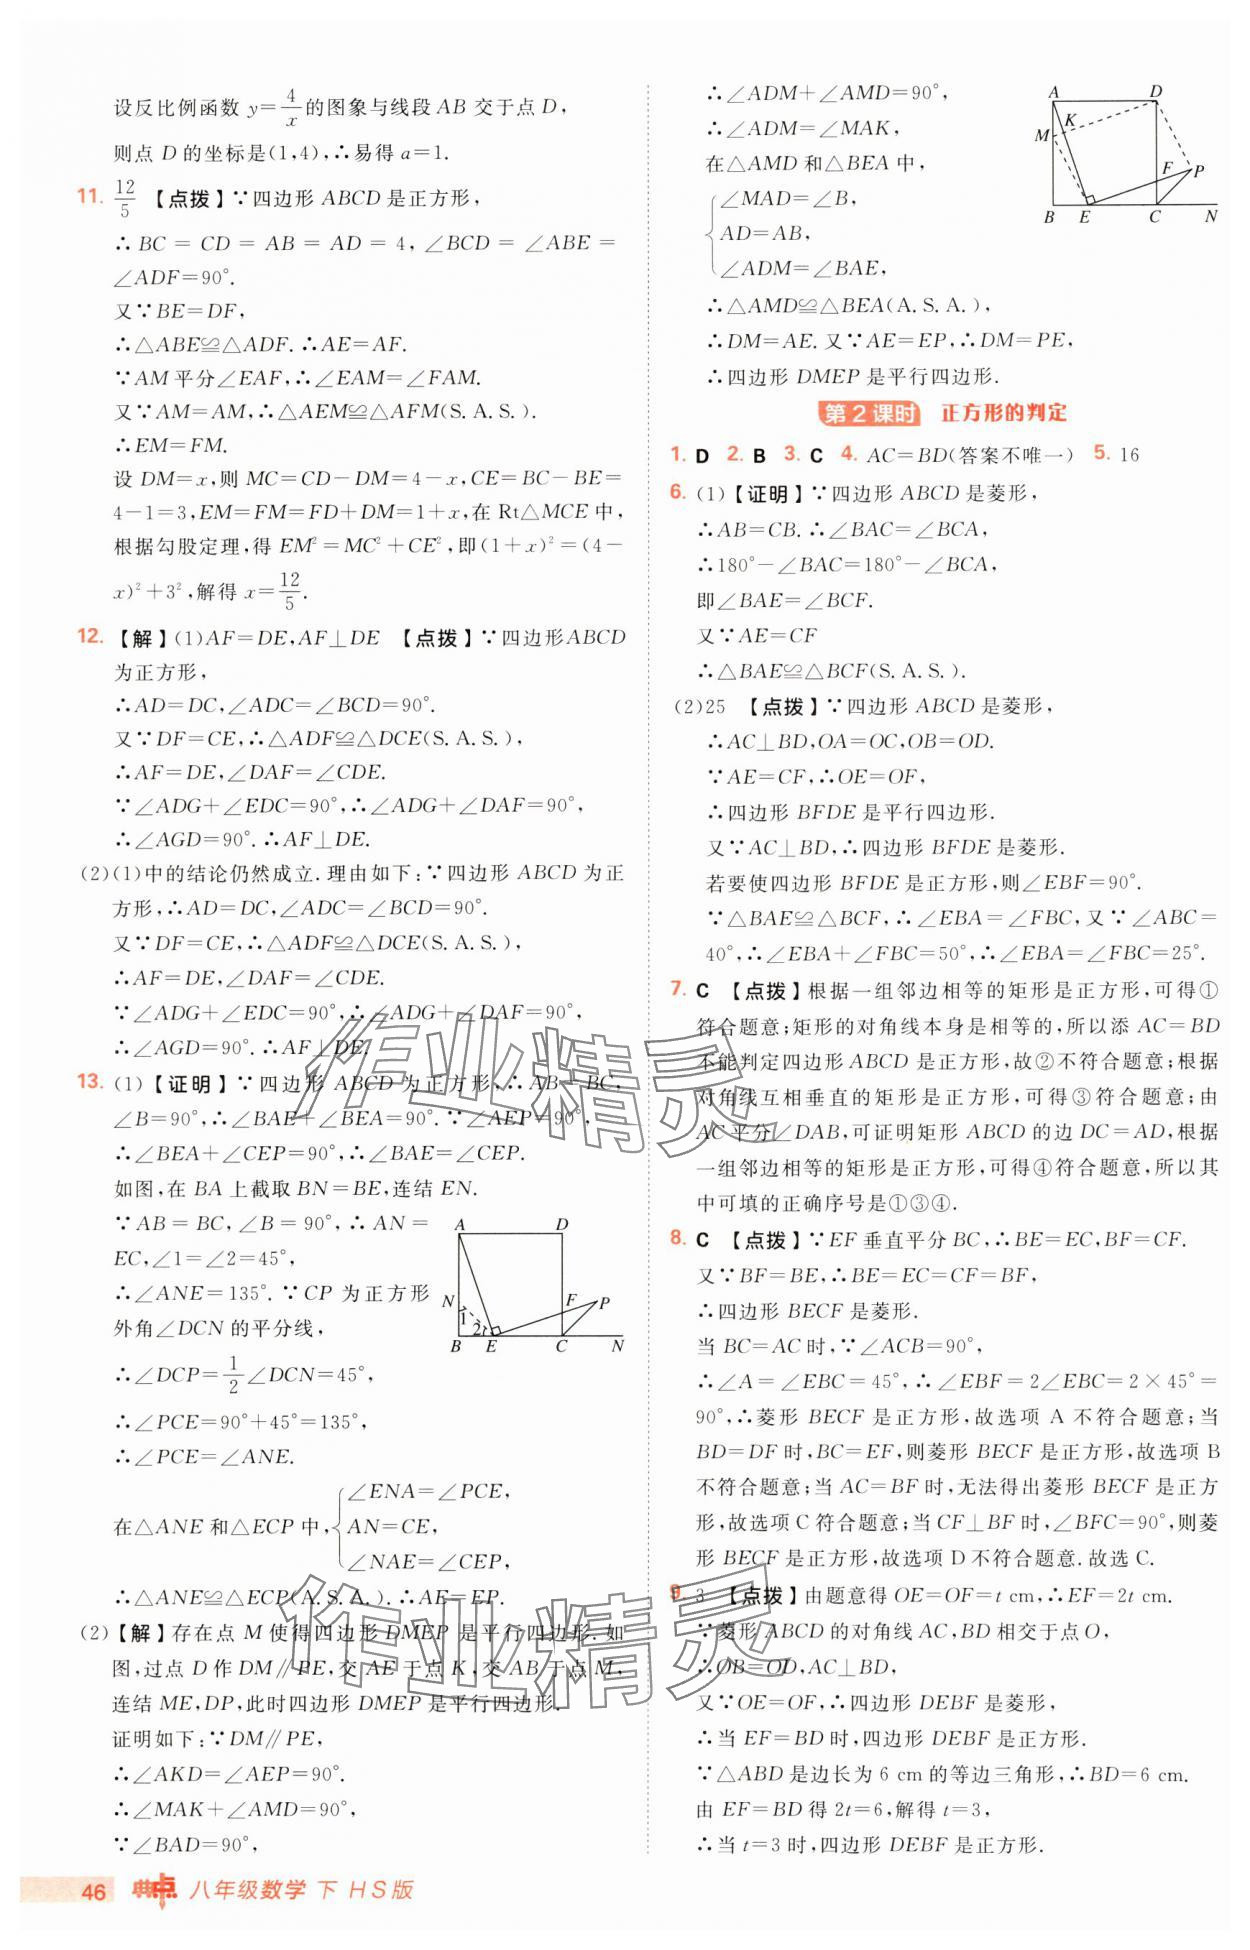 设反比例函数 y=4/x 的图象与线段 AB 交于点 D,
则点 D 的坐标是(1,4),∴易得 a=1.
11. 12/5 【点拨】∵四边形 ABCD 是正方形,
∴BC=CD=AB=AD=4,∠BCD=∠ABE=
∠ADF=90°.
又∵BE=DF,
∴△ABE≌△ADF.∴AE=AF.
∵AM 平分∠EAF,∴∠EAM=∠FAM.
又∵AM=AM,∴△AEM≌△AFM(S.A.S.).
∴EM=FM.
设 DM=x,则 MC=CD-DM=4-x,CE=BC-BE=
4-1=3,EM=FM=FD+DM=1+x,在 Rt△MCE 中,
根据勾股定理,得 EM²=MC²+CE²,即(1+x)²=(4-
x)²+3²,解得 x=12/5.
12. 【解】(1)AF=DE,AF⊥DE 【点拨】∵四边形ABCD
为正方形,
∴AD=DC,∠ADC=∠BCD=90°.
又∵DF=CE,∴△ADF≌△DCE(S.A.S.),
∴AF=DE,∠DAF=∠CDE.
∵∠ADG+∠EDC=90°,∴∠ADG+∠DAF=90°,
∴∠AGD=90°.∴AF⊥DE.
(2)(1)中的结论仍然成立.理由如下:∵四边形 ABCD 为正
方形,∴AD=DC,∠ADC=∠BCD=90°.
又∵DF=CE,∴△ADF≌△DCE(S.A.S.),
∴AF=DE,∠DAF=∠CDE.
∵∠ADG+∠EDC=90°,∴∠ADG+∠DAF=90°,
∴∠AGD=90°.∴AF⊥DE.
13. (1)【证明】∵四边形 ABCD 为正方形,∴AB=BC,
∠B=90°,∴∠BAE+∠BEA=90°.∵∠AEP=90°,
∴∠BEA+∠CEP=90°,∴∠BAE=∠CEP.
如图,在 BA 上截取 BN=BE,连结 EN.
∵AB=BC,∠B=90°,∴AN=
EC,∠1=∠2=45°,
∴∠ANE=135°.∵CP 为正方形
外角∠DCN 的平分线,
∴∠DCP=1/2∠DCN=45°,
∴∠PCE=90°+45°=135°,
∴∠PCE=∠ANE.
A D
N F P
1 2
B E C N
在△ANE 和△ECP 中,{∠ENA=∠PCE,
AN=CE,
∠NAE=∠CEP,
∴△ANE≌△ECP(A.S.A.).∴AE=EP.
(2)【解】存在点 M 使得四边形 DMEP 是平行四边形.如
图,过点 D 作 DM∥PE,交 AE 于点 K,交 AB 于点 M,
连结 ME,DP,此时四边形 DMEP 是平行四边形.
证明如下:∵DM∥PE,
∴∠AKD=∠AEP=90°.
∴∠MAK+∠AMD=90°,
∵∠BAD=90°,
∴∠ADM+∠AMD=90°,
∴∠ADM=∠MAK,
在△AMD 和△BEA 中,
{∠MAD=∠B,
AD=AB,
∠ADM=∠BAE,
∴△AMD≌△BEA(A.S.A.),
∴DM=AE.又∵AE=EP,∴DM=PE,
∴四边形 DMEP 是平行四边形.
A D
K
M
F P
B E C N
第2课时 正方形的判定
1. D 2. B 3. C 4. AC=BD(答案不唯一) 5. 16
6. (1)【证明】∵四边形 ABCD 是菱形,
∴AB=CB.∴∠BAC=∠BCA,
∴180°-∠BAC=180°-∠BCA,
即∠BAE=∠BCF.
又∵AE=CF
∴△BAE≌△BCF(S.A.S.).
(2)25 【点拨】∵四边形 ABCD 是菱形,
∴AC⊥BD,OA=OC,OB=OD.
∵AE=CF,∴OE=OF,
∴四边形 BFDE 是平行四边形.
又∵AC⊥BD,∴四边形 BFDE 是菱形.
若要使四边形 BFDE 是正方形,则∠EBF=90°.
∵△BAE≌△BCF,∴∠EBA=∠FBC,又∵∠ABC=
40°,∴∠EBA+∠FBC=50°,∴∠EBA=∠FBC=25°.
7. C 【点拨】根据一组邻边相等的矩形是正方形,可得①
符合题意;矩形的对角线本身是相等的,所以添 AC=BD
不能判定四边形 ABCD 是正方形,故②不符合题意;根据
对角线互相垂直的矩形是正方形,可得③符合题意;由
AC平分∠DAB,可证明矩形 ABCD 的边 DC=AD,根据
一组邻边相等的矩形是正方形,可得④符合题意,所以其
中可填的正确序号是①③④.
8. C 【点拨】∵EF 垂直平分 BC,∴BE=EC,BF=CF.
又∵BF=BE,∴BE=EC=CF=BF,
∴四边形 BECF 是菱形.
当 BC=AC 时,∵∠ACB=90°,
∴∠A=∠EBC=45°,∴∠EBF=2∠EBC=2×45°=
90°,∴菱形 BECF 是正方形,故选项 A 不符合题意;当
BD=DF 时,BC=EF,则菱形 BECF 是正方形,故选项 B
不符合题意;当 AC=BF 时,无法得出菱形 BECF 是正方
形,故选项 C 符合题意;当 CF⊥BF 时,∠BFC=90°,则菱
形 BECF 是正方形,故选项 D 不符合题意.故选 C.
9. 3 【点拨】由题意得 OE=OF=t cm,∴EF=2t cm.
∵菱形 ABCD 的对角线 AC,BD 相交于点 O,
∴OB=OD,AC⊥BD,
又∵OE=OF,∴四边形 DEBF 是菱形,
∴当 EF=BD 时,四边形 DEBF 是正方形.
∵△ABD 是边长为 6 cm 的等边三角形,∴BD=6 cm.
由 EF=BD 得 2t=6,解得 t=3,
∴当 t=3 时,四边形 DEBF 是正方形.
作业精灵
作业精灵
46 典点 八年级数学 下 HS版